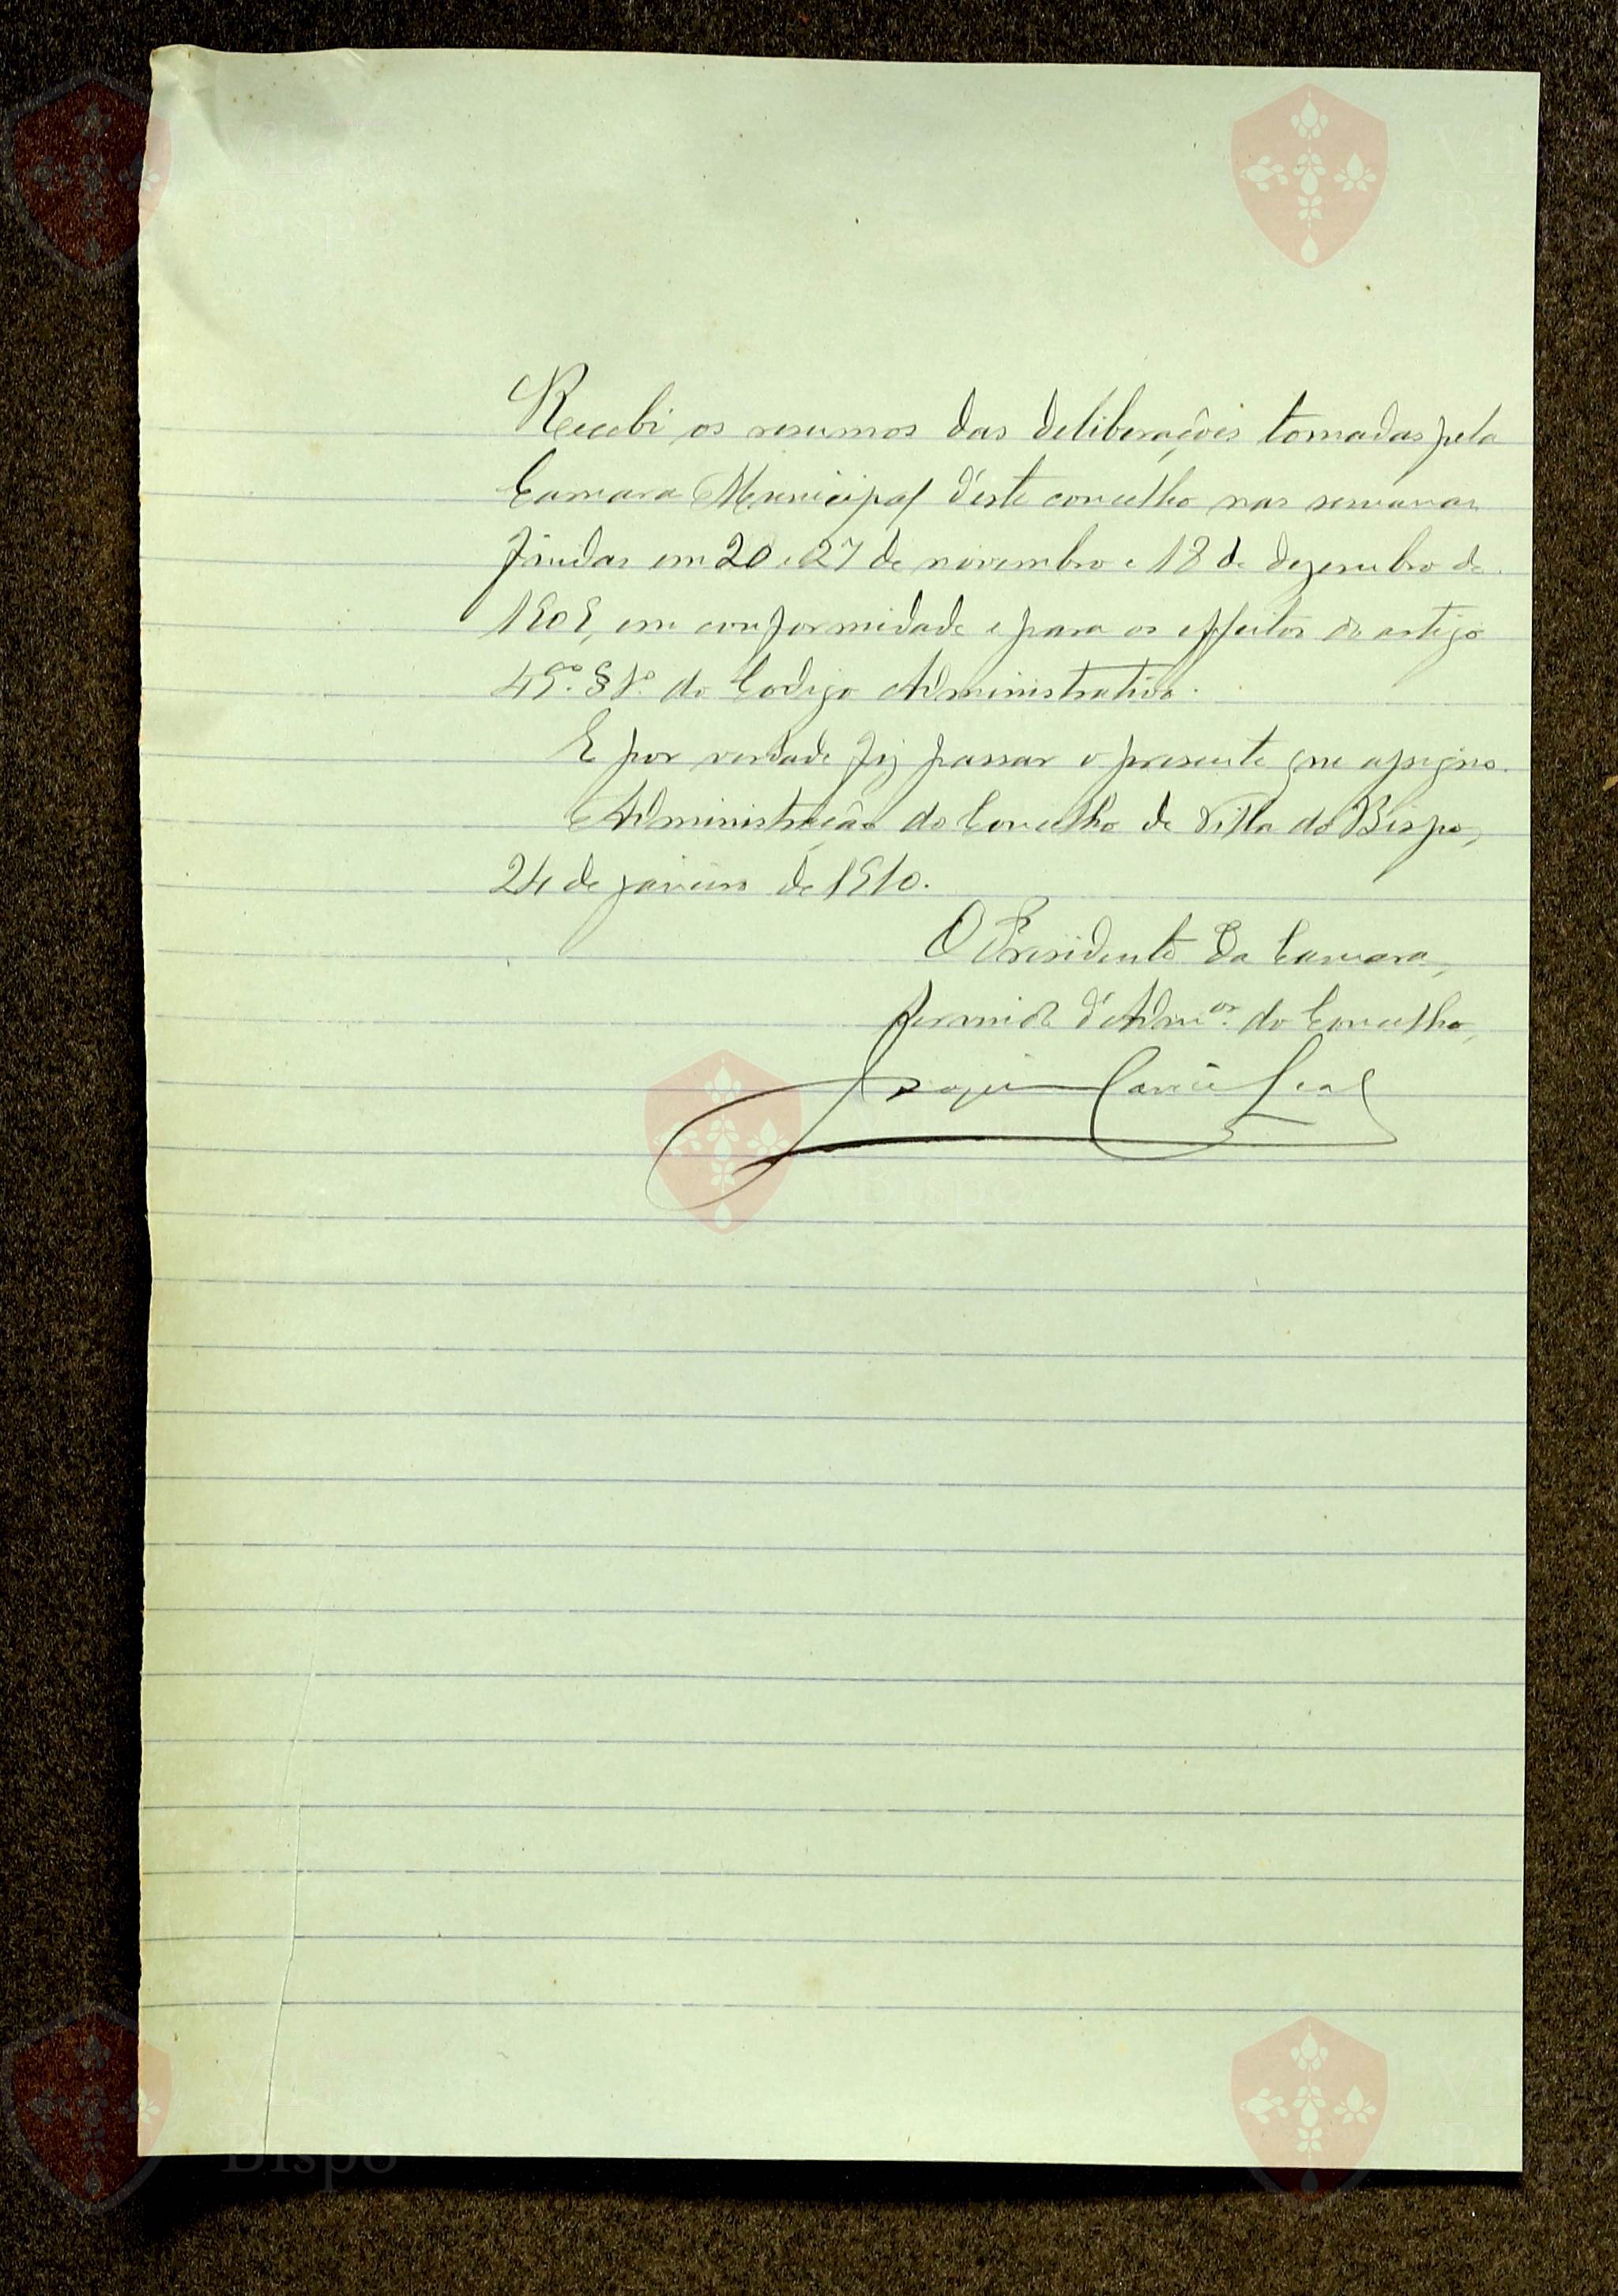 Recebi os resumos das deliberações tomadas pela
Camara Municipal d'este concelho nas semanas
findas em 20 e 27 de novembro e 18 de dezembro de
1909, em conformidade e para os effeitos do artigo
§ 1º do Codigo Administrativo.
E por verdade fiz passar o presente que assigno.
Administração do Concelho de Villa do Bispo,
24 de janeiro de 1910.
O Presidente da Camara,
servindo d'Admor. do Concelho,
Joaquim Leal
Bispo
Bispo